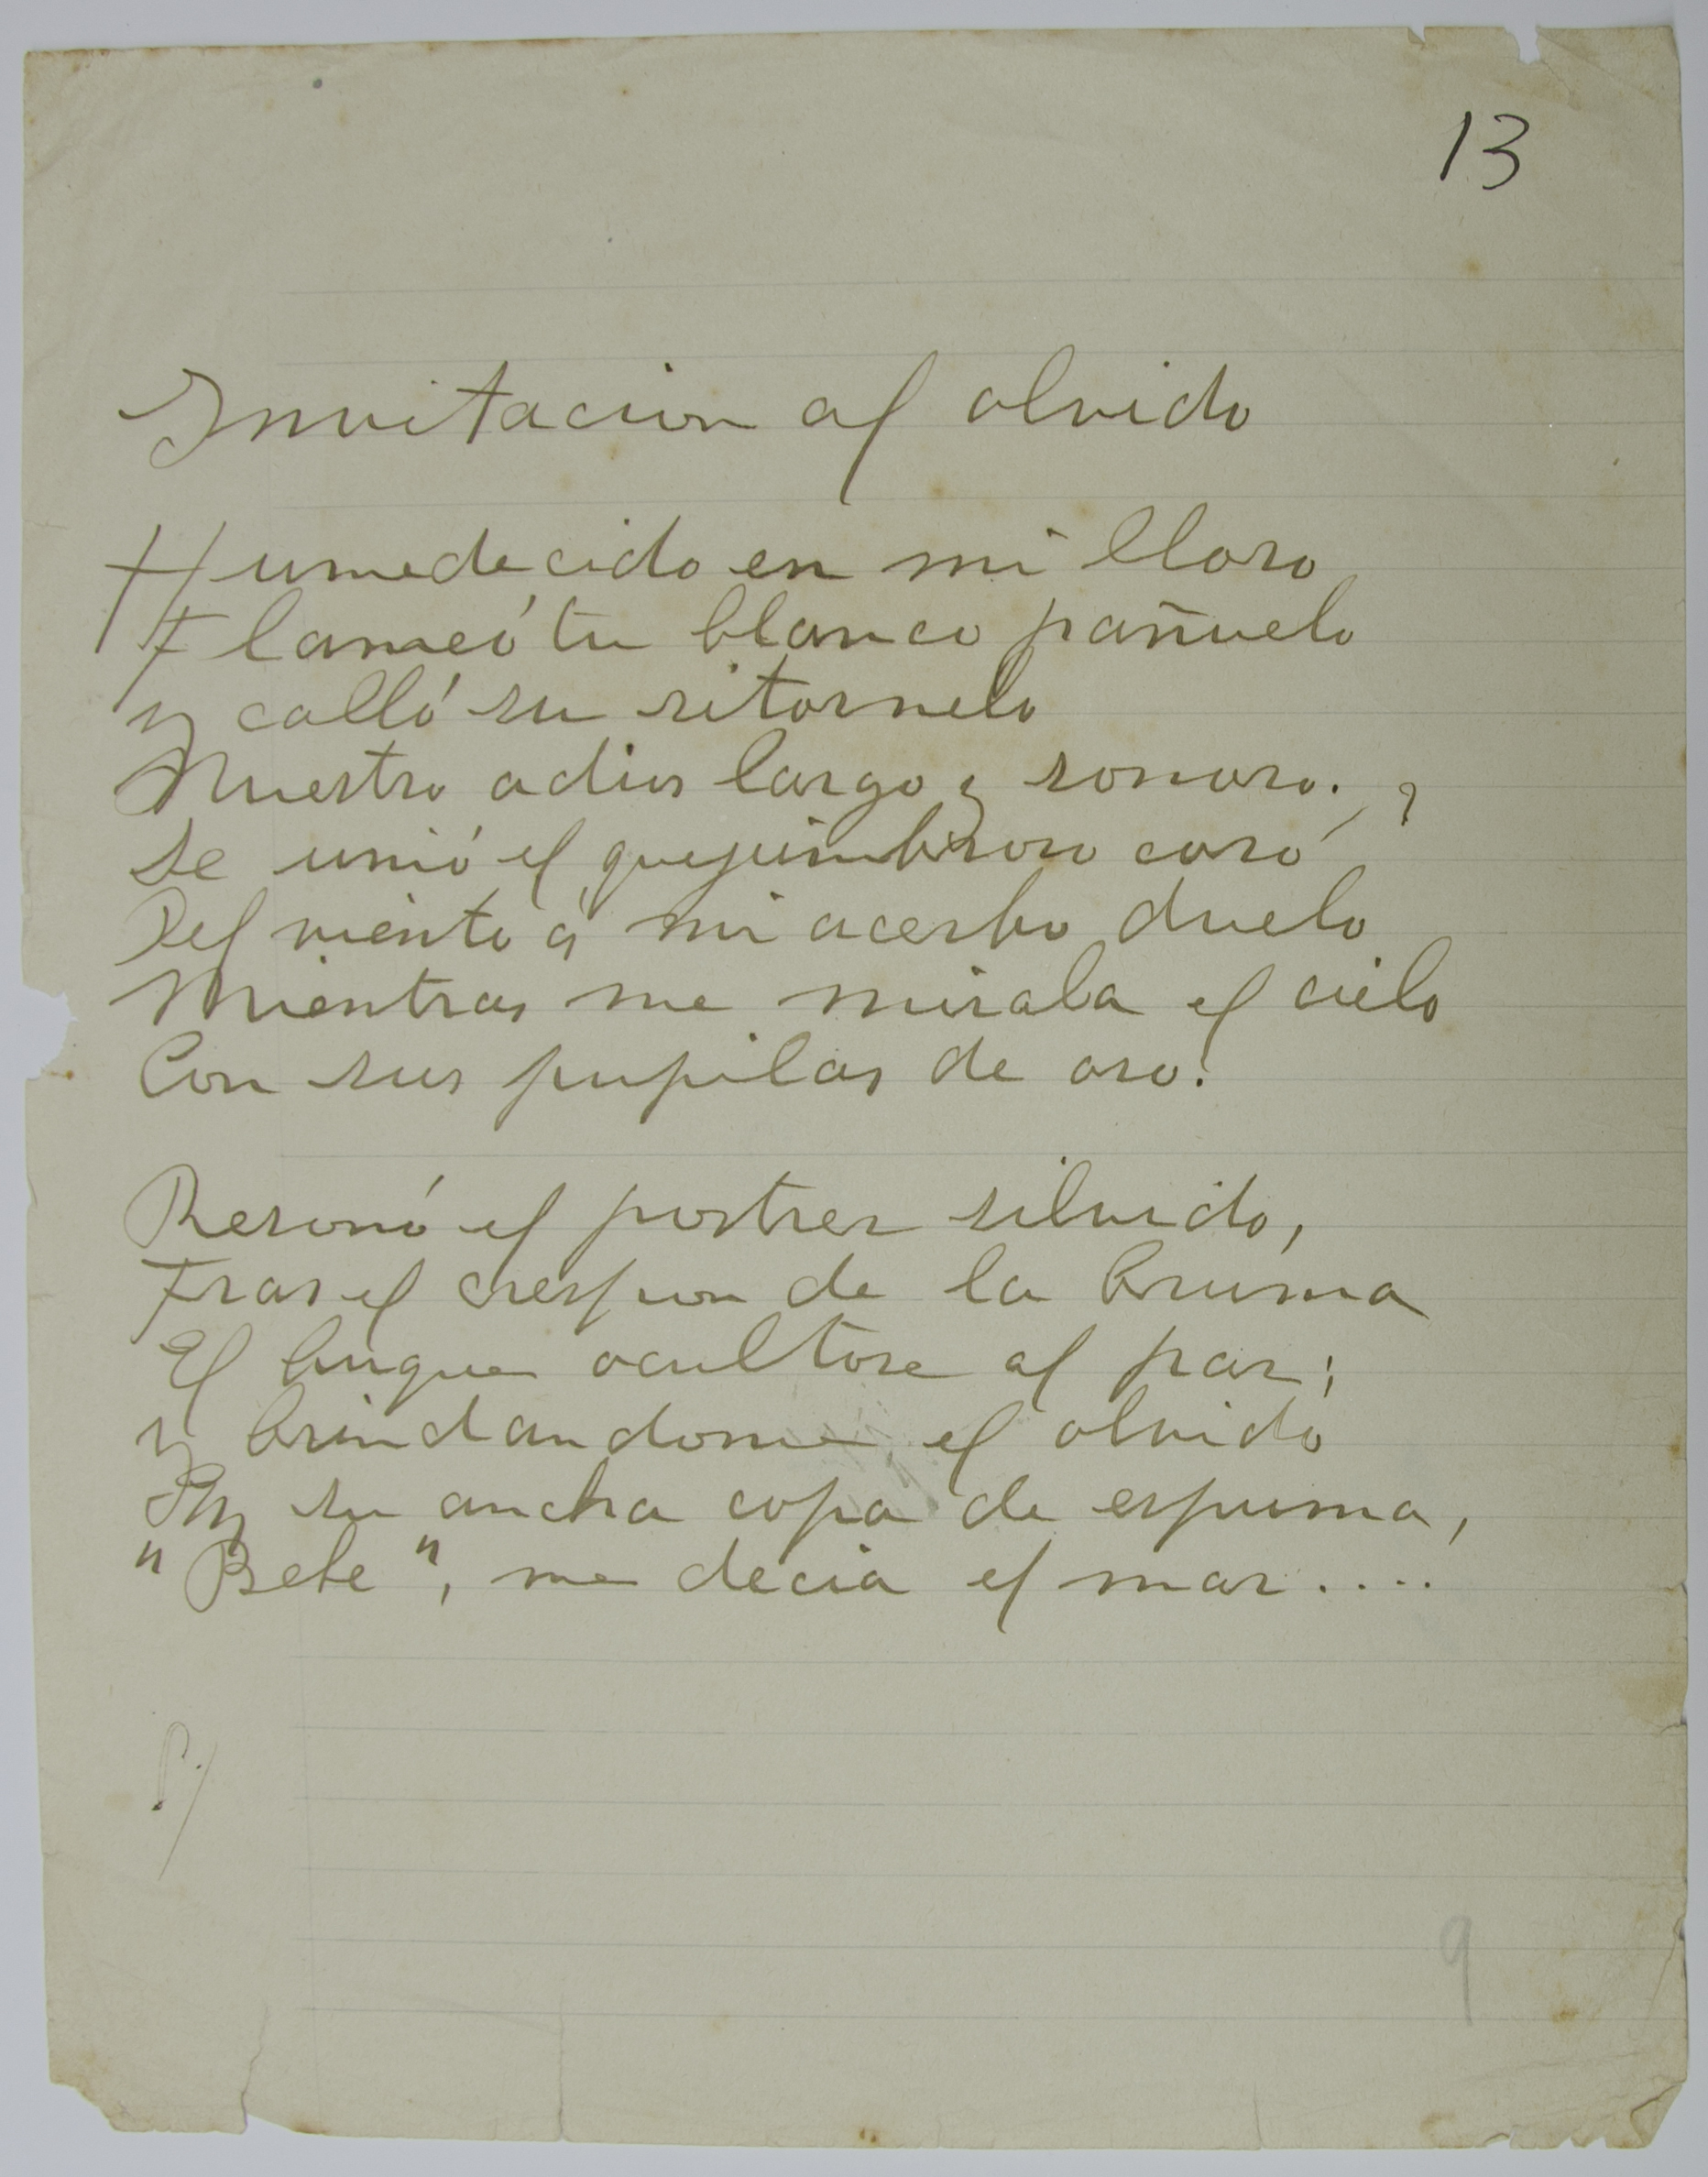 13
Invitacion al olvido
Humedecido en mi lloro
Flameó tu blanco pañuelo
y calló su ritornelo
Nuestro adios largo y sonoro.
Se unió el quejumbroso coro
Del viento á mi acerbo duelo
Mientras me miraba el cielo
Con sus pupilas de oro.
Resonó el postrer silvido,
Tras el crespon de la bruma
El buque ocultose al par;
y brindandome el olvido
En su ancha copa de espuma,
"Bebe", me decia el mar....
9